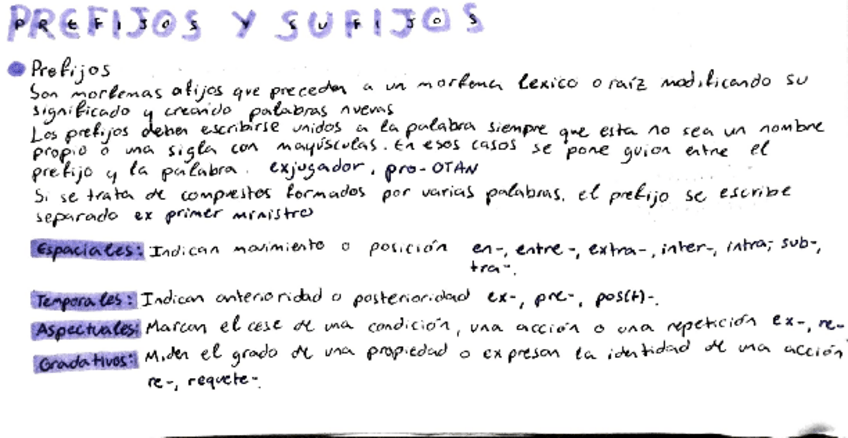 PREFIJOS Y SUFIJOS
Prefijos
Son morfemas afijos que preceden a un morfema lexico o raíz modificando su
significado y creando palabras nuevas
Los prefijos deben escribirse unidos a la palabra siempre que esta no sea un nombre
propio o una sigla con mayúsculas. En esos casos se pone guion entre el
prefijo y la palabra. exjugador, pro-OTAN
Si se trata de compuestos formados por varias palabras, el prefijo se escribe
separado ex primer ministro
Espaciales: Indican movimiento o posición en-, entre-, extra-, inter-, intra-, sub-,
tra-.
Temporales: Indican anterioridad o posterioridad ex-, pre-, pos(t)-.
Aspectuales: Marcan el cese de una condición, una acción o una repetición ex-, re-
Gradativos: Miden el grado de una propiedad o expresan la identidad de una acción
re-, requete-.